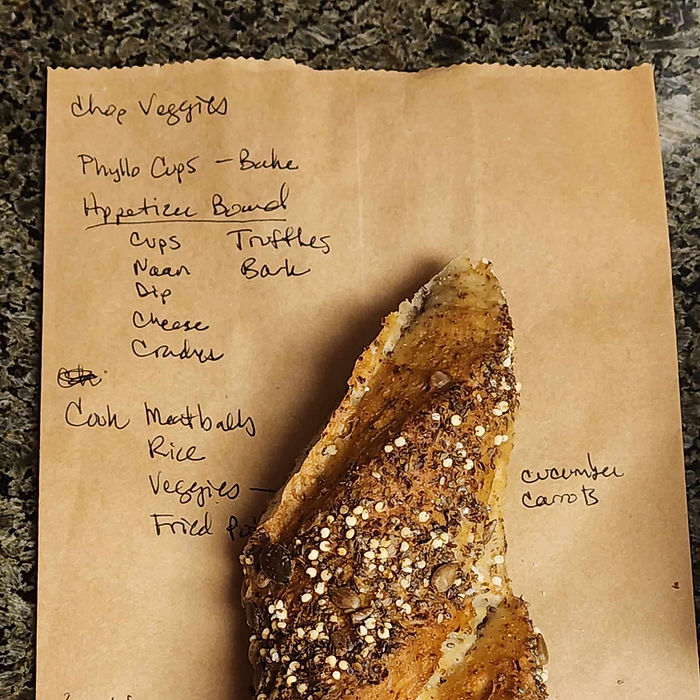 Chop Veggies
Phyllo Cups - Bake
Appetizer Board
Cups Truffles
Naan Bark
Dip
Cheese
Cook Meatballs
Rice
Veggies — cucumber
carrots
Fried